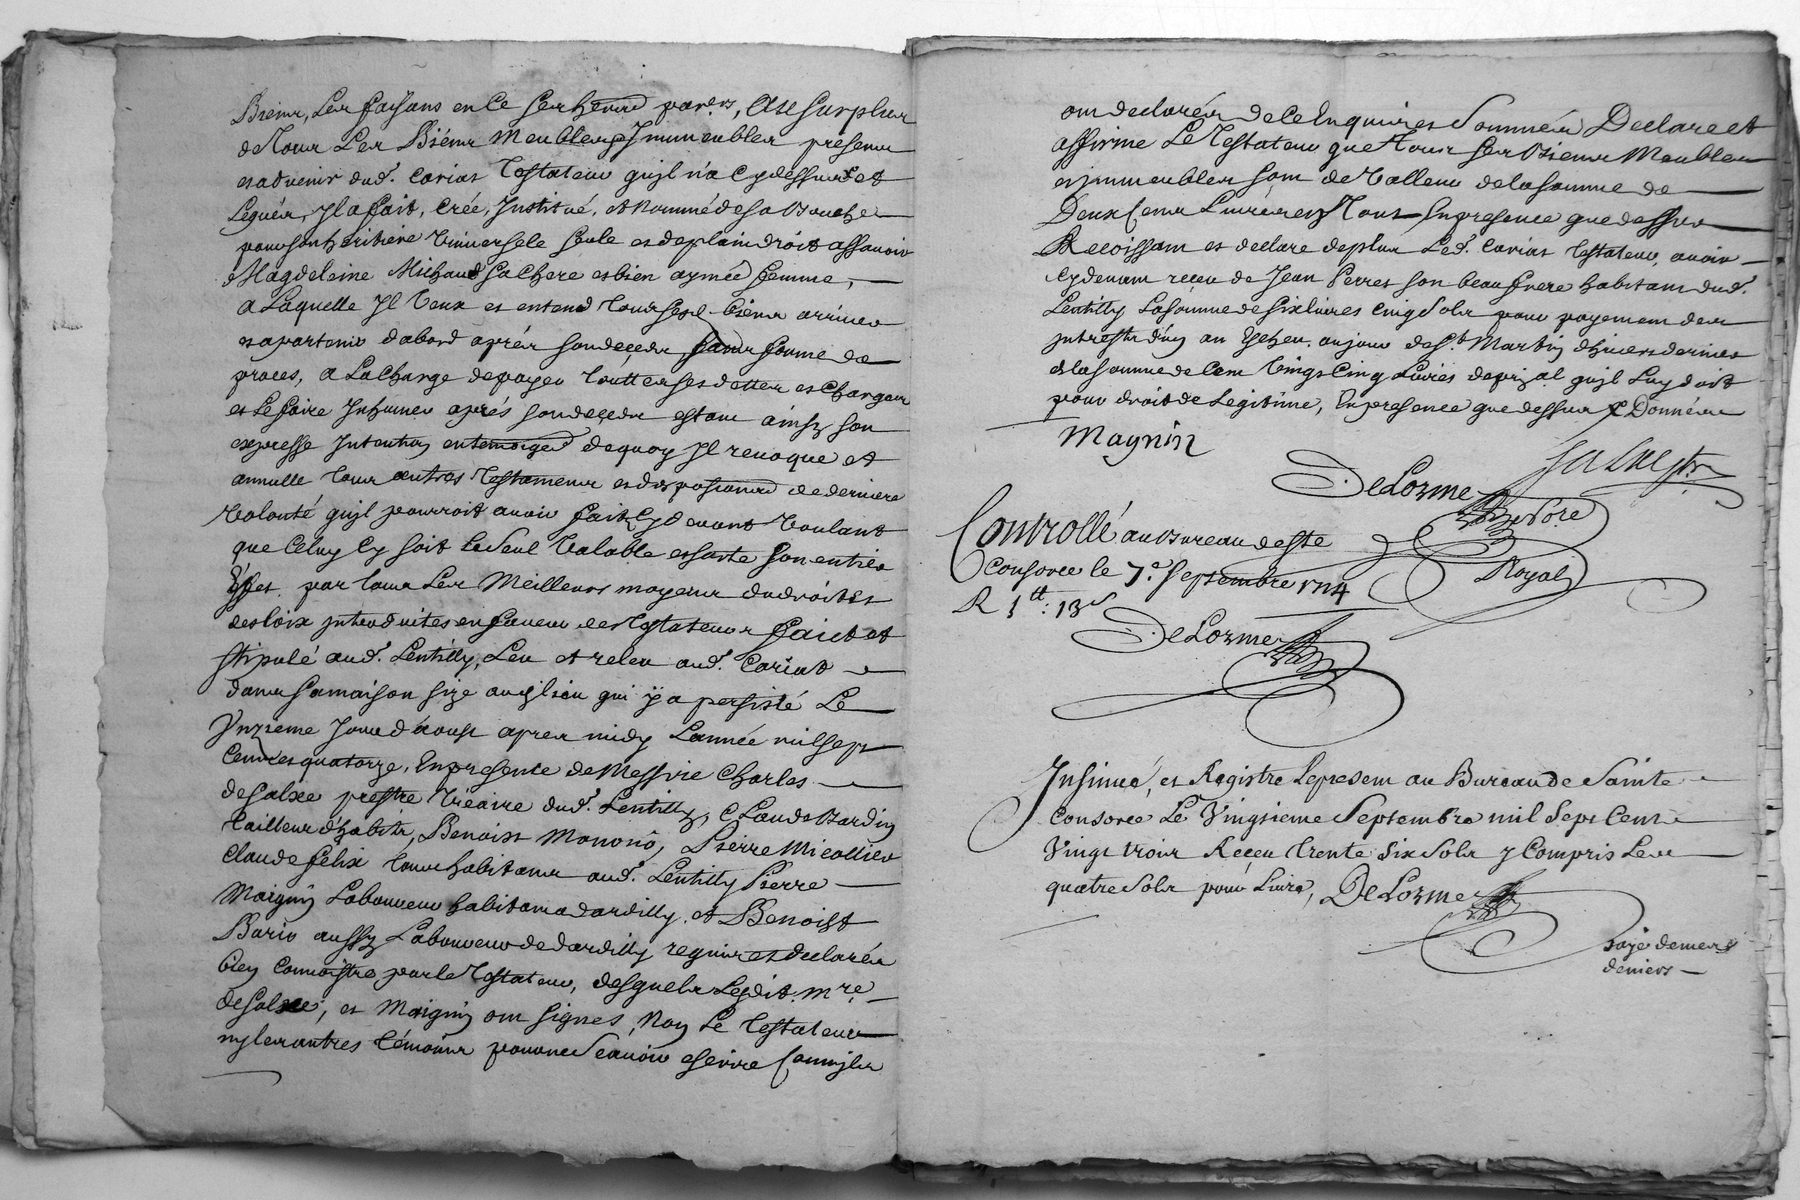 Biens, Les faisans en ce ses heritiers par.ers, Au surplus
de Tous Les Biens Meubles et Immeubles presens
et advenir dud. Coriat Testateur qu'jl n'a cydessus et
Legués, Jl a fait, Creé, Institué, et Nommé de sa Bouche
pour son heritiere Universele seule et de plain droit assavoir
Magdeleine Michaud sa chere et bien aymée femme,
a Laquelle Jl Veux et entend tous ses biens arriver
et apartenir d'abord aprés son deçeds sans forme de
proces, a La Charge de payer touttes ses dettes et Charges
et Le faire Inhumer aprés son deçeds estant ainsy son
expresse Intention en temoigned de quoy Jl revoque et
annulle tous autres Testaments et dispositions de derniere
Volonté qu'jl pourroit avoir fait Cy devant Voulant
que Celuy Cy soit Le Seul Valable et sorte son entier
Effet par tous Les Meilleurs moyens du droit et
des Loix jntroduites en faveur des Testateurs Faict et
stipulé aud. Lentilly, Leu et releu aud. Coriat
dans sa maison size aud. lieu qui ÿ a persisté Le
Ynzieme Jour d'aoust apres midy L'année mil sept
Cents et quatorze, En presence de Messire Charles
de Salxe prestre Vicaire dud. Lentilly, Claude Bardin
tailleur d'habits, Benoist Mononô, Pierre Micollier
Claude Felix tous habitans aud. Lentilly Pierre
Maignin Laboureur habitant a dardilly, et Benoist
Boriv aussy Laboureur de dardilly requis et declarés
bien Connoistre par le Testateur, desquels Lesdit. mre.
de Salxe, et Maignin ont signés, Non Le Testateur
ny Les autres témoins pour ne Scavoir escrire Comm'jls
ont declarés de Ce Enquis et Sommés Declare et
affirme Le Testateur que tous ses Biens Meubles
et jmmeubles sont de Valleur de la somme de
Deux Cens Livres en Tout En presence que dessus
Recoissant et declare de plus Led. Coriat Testateur, avoir
Cy devant receu de Jean Perret son beau frere habitant dud.
Lentilly La somme de six livres cinq Sols pour payement des
jntrests d'un an Escheu au jour de St. Martin d'hivers dernier
de la somme de Cent Vingt Cinq Livres de prjal qu'jl Luy doit
pour droit de Legitime, En presence que dessus Donnéau
Magnin
DeLorme
Nore
Royal
Controllé au Bureau de Ste
Consorce le 7e. Septembre 1714
R 1tt: 13s
DeLorme
Insinué, et Registré Le present au Bureau de Sainte
Consorce Le Vingtieme Septembre mil Sept Cent
Vingt trois Receu trente six Sols y Compris Les
quatre Sols pour Livre, DeLorme
deniers